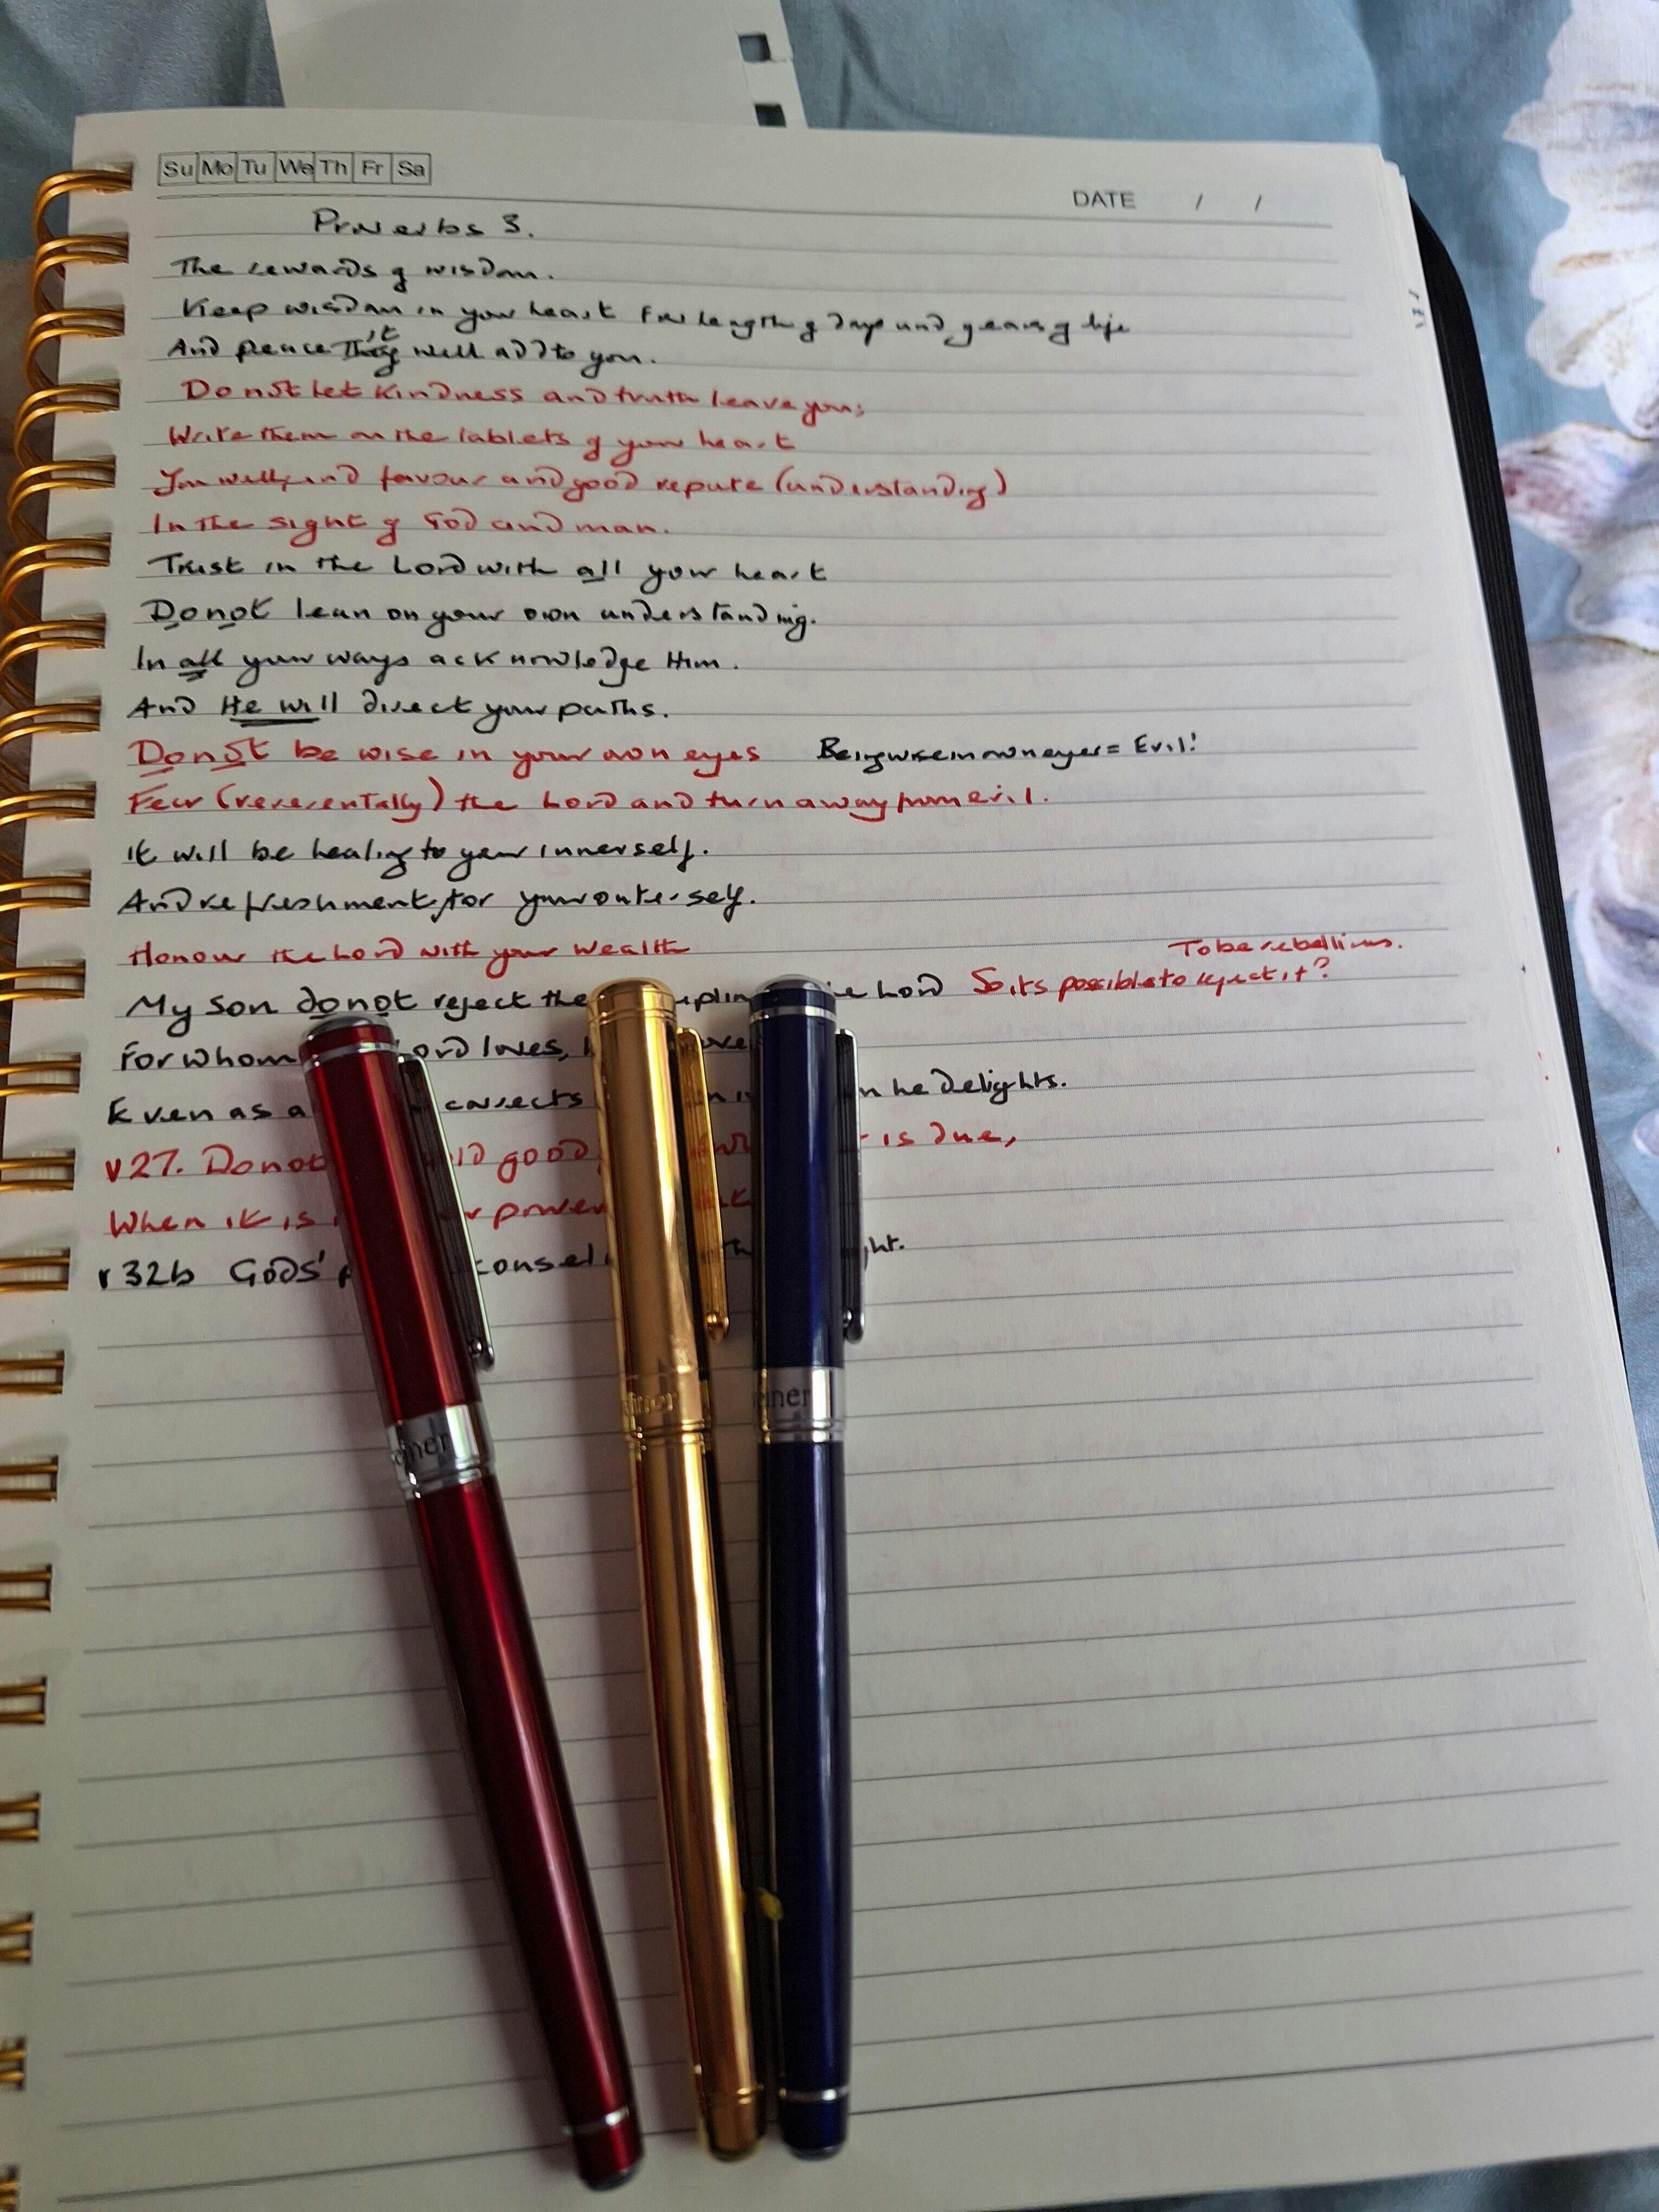 Su Mo Tu We Th Fr Sa
DATE / /
Proverbs 3.
The rewards of wisdom.
Keep wisdom in your heart For length of days and years of life
it
And peace They will add to you.
Do not let kindness and truth leave you;
Write them on the tablets of your heart
You will find favour and good repute (understanding)
In the sight of God and man.
Trust in the Lord with all your heart
Do not lean on your own understanding.
In all your ways acknowledge Him.
And He will direct your paths.
Do not be wise in your own eyes Being wise in own eyes = Evil!
Fear (reverentally) the Lord and turn away from evil.
It will be healing to your innerself.
And refreshment for your outer self.
Honour the Lord with your wealth
To be rebellious.
My son do not reject the Lord So its possible to reject it?
For whom ord loves,
Even as a corrects he delights.
v27. Do not good is due,
When it is power
v32b Gods' consel
iner